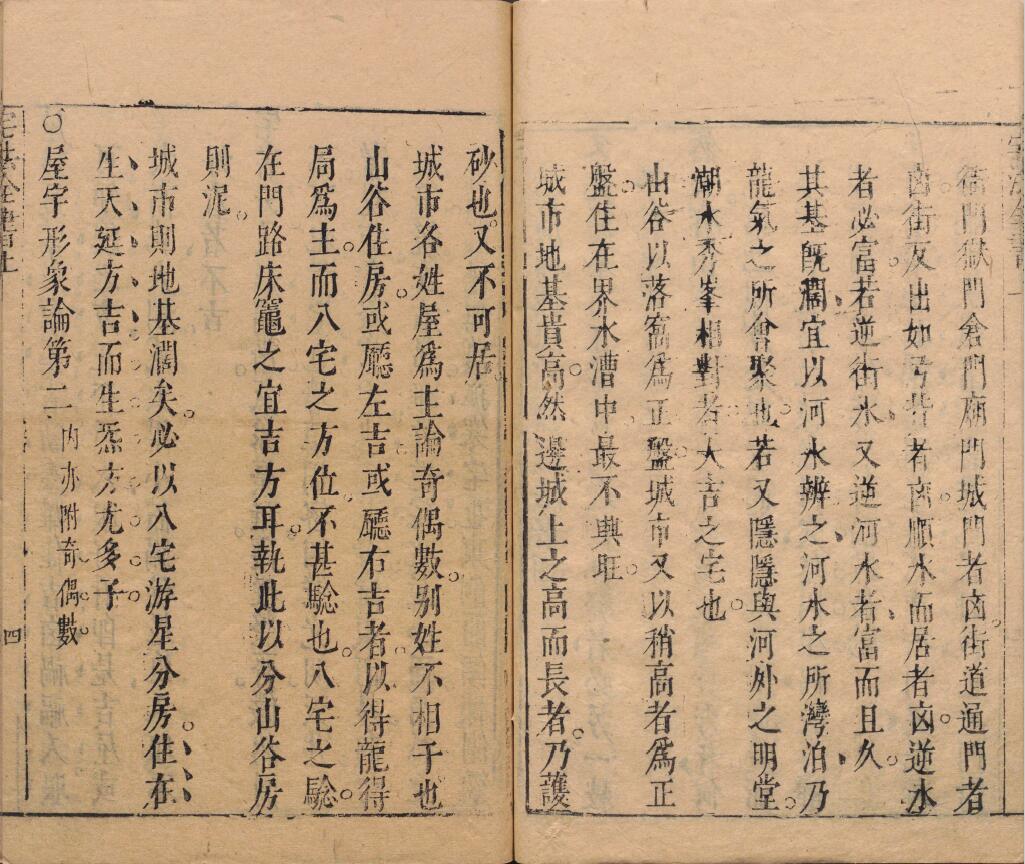 衙門獄門倉門廟門城門者㐫街道通門者
㐫街反出如弓背者㐫順水而居者㐫逆水
者必富若逆街水又逆河水者富而且久
其基既濶宜以河水辨之河水之所灣泊乃
龍氣之所會聚也若又隱隱與河外之明堂
潮水秀峯相對者大吉之宅也
山谷以落窩為正盤城市又以稍高者為正
盤住在界水漕中最不興旺
城市地基貴高然邊城上之高而長者乃護
砂也又不可居
城市各姓屋爲主論奇偶數别姓不相干也
山谷住房或廳左吉或廳右吉者以得龍得
局爲主而八宅之方位不甚驗也八宅之驗
在門路床竈之宜吉方耳執此以分山谷房
則泥
城市則地基濶矣必以八宅游星分房住在
生天延方吉而生炁方尤多子
○屋宇形象論第二 内亦附奇偶數
四